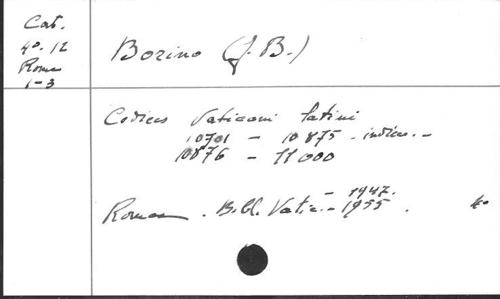 Cat.
4o. 12
Roma
1-3
Borino (J. B.)
Codices Vaticani latini
10701 - 10875 - indices. -
10876 - 11000
- 1947.
Roma . Bibl. Vatic. - 1955 .